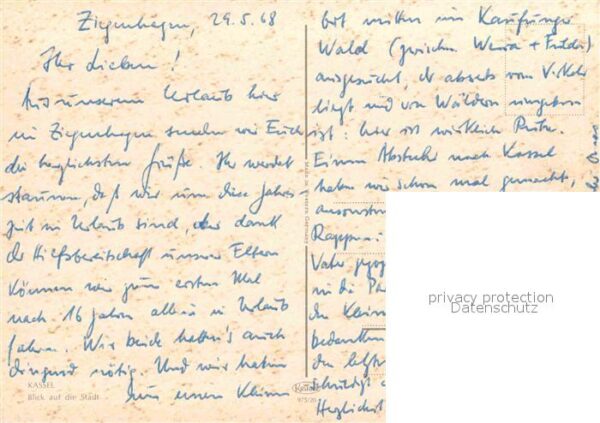 Ziegenhagen, 29.5.68
Ihr Lieben!
Aus unserem Urlaub hier
in Ziegenhagen senden wir Euch
die herzlichsten Grüße. Ihr werdet
staunen, daß wir um diese Jahres-
zeit in Urlaub sind, aber dank
der Hilfsbereitschaft unserer Eltern
können wir zum ersten Mal
nach 16 Jahren allein in Urlaub
fahren. Wir beide hatten's auch
dringend nötig. Und wir haben
uns einen kleinen
KASSEL
Blick auf die Stadt
9/5/20
Ort mitten im Kaufunger
Wald (zwischen Werra + Fulda)
ausgesucht, der abseits vom Verkehr
liegt und von Wäldern umgeben
ist: hier ist wirklich Ruhe.
Einen Abstecher nach Kassel
haben wir schon mal gemacht,
ansonsten
Vater
in die
den Klein
bedanken
den
Herzlichst
privacy protection
Datenschutz